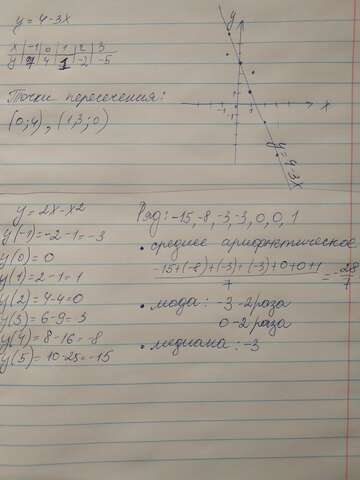 y = 4-3x
x | -1 | 0 | 1 | 2 | 3
y | 7 | 4 | 1 | -2 | -5
Точки пересечения:
(0;4), (1,3;0)
y
x
1
-1
y=4-3x
y = 2x-x2
y(-1)=-2-1=-3
y(0)=0
y(1)=2-1=1
y(2)=4-4=0
y(3)=6-9=-3
y(4)=8-16=-8
y(5)=10-25=-15
Ряд: -15,-8,-3,-3,0,0,1
• среднее арифметическое
-15+(-8)+(-3)+(-3)+0+0+1
7
= -28
7
• мода: -3 -2 раза
0 -2 раза
• медиана: -3